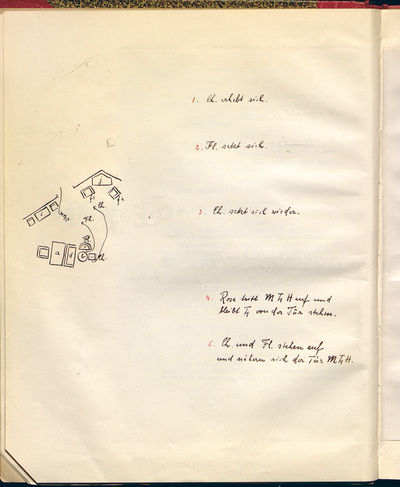 1. Ch. erhebt sich.
2. Fl. setzt sich.
3. Ch. setzt sich wieder.
4. Rosa tritt M Tj H auf und
bleibt Tj von der Tür stehen.
5. Ch. und Fl. stehen auf
und nähern sich der Tür M Tj H.
Ch.
Fl.
a
Ch.